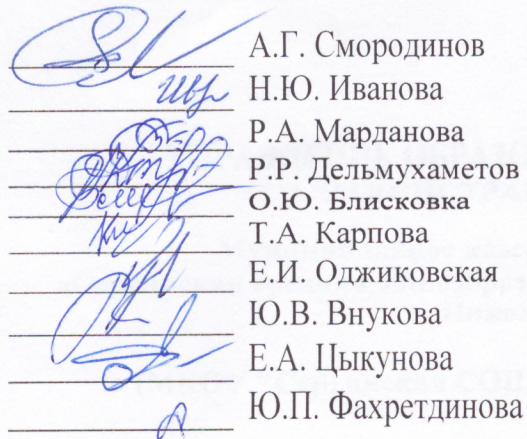 А.Г. Смородинов
Н.Ю. Иванова
Р.А. Марданова
Р.Р. Дельмухаметов
О.Ю. Блисковка
Т.А. Карпова
Е.И. Оджиковская
Ю.В. Внукова
Е.А. Цыкунова
Ю.П. Фахретдинова